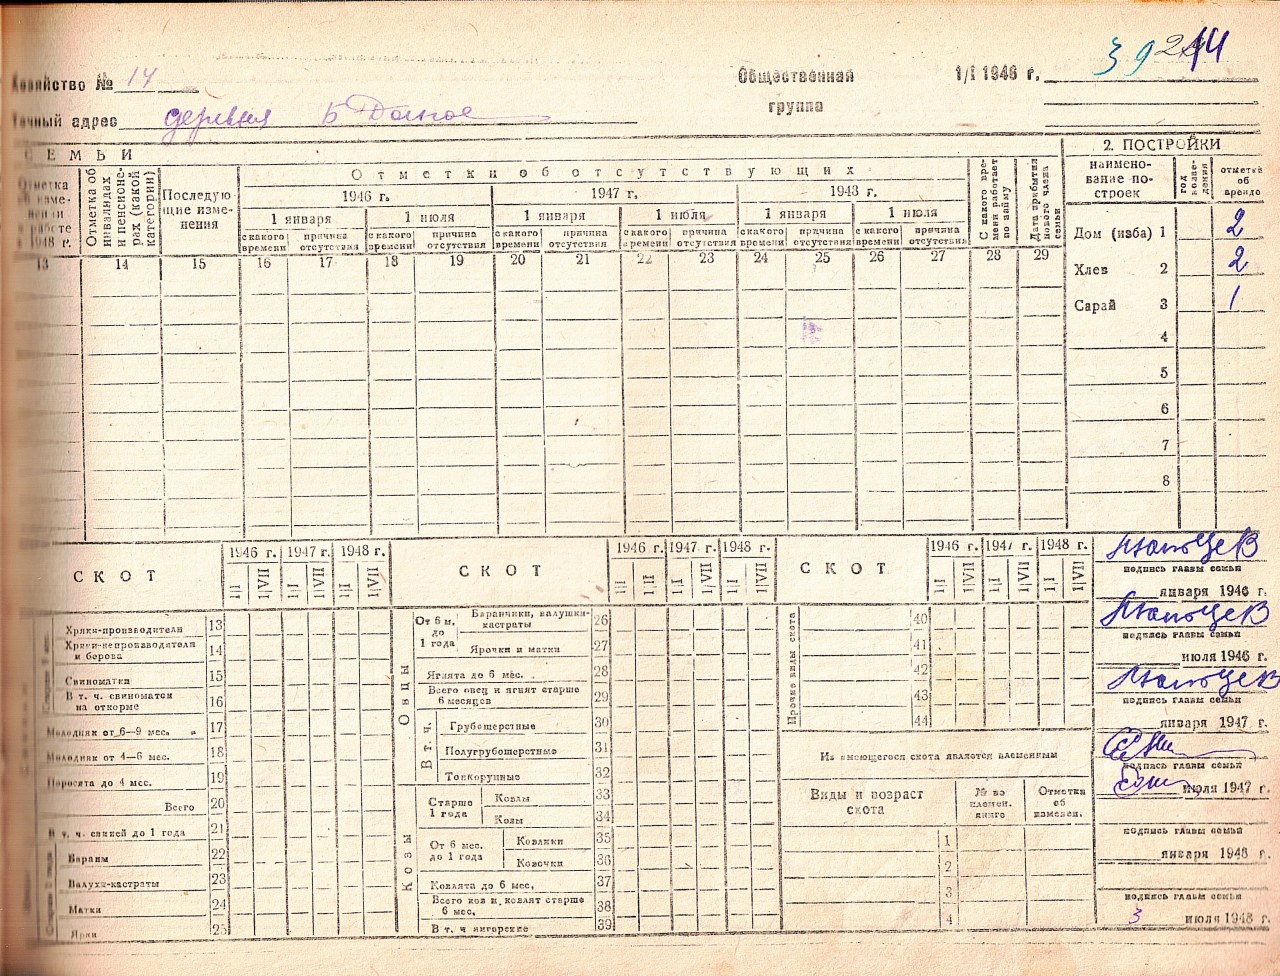 Хозяйство № 14
Общественная группа
1/I 1946 г.
39
44
Точный адрес деревня Б Долгое
СЕМЬИ
Отметка об инвалидах и пенсионерах (какой категории)
Последующие изменения
Отметки об отсутствующих
1946 г. 1947 г. 1943 г.
1 января 1 июля 1 января 1 июля 1 января 1 июля
с какого времени причина отсутствия с какого времени причина отсутствия с какого времени причина отсутствия с какого времени причина отсутствия с какого времени причина отсутствия с какого времени причина отсутствия
С какого времени работает по найму
Дата прибытия нового члена семьи
13 14 15 16 17 18 19 20 21 22 23 24 25 26 27 28 29
2. ПОСТРОЙКИ
наименование построек
год возведения
отметка об аренде
Дом (изба) 1 2
Хлев 2 2
Сарай 3 1
4
5
6
7
8
СКОТ
1946 г. 1947 г. 1948 г.
1|I 1|VII 1|I 1|VII 1|I 1|VII
Хряки-производители 13
Хряки-непроизводители и борова 14
Свиноматки 15
В т. ч. свиноматки на откорме 16
Молодняк от 6—9 мес. 17
Молодняк от 4—6 мес. 18
Поросята до 4 мес. 19
Всего 20
В т. ч. свиней до 1 года 21
Бараны 22
Валухи-кастраты 23
Матки 24
Ярки 25
СКОТ
1946 г. 1947 г. 1948 г.
1|I 1|II 1|I 1|VII 1|I 1|VII
Овцы
От 6 м. до 1 года
Баранчики, валушки-кастраты 26
Ярочки и матки 27
Ягнята до 6 мес. 28
Всего овец и ягнят старше 6 месяцев 29
В т. ч.
Грубошерстные 30
Полугрубошерстные 31
Тонкорунные 32
Козы
Старше 1 года
Козлы 33
Козы 34
От 6 мес. до 1 года
Козлики 35
Козочки 36
Козлята до 6 мес. 37
Всего коз и козлят старше 6 мес. 38
В т. ч ангорские 39
СКОТ
1946 г. 1947 г. 1948 г.
1|I 1|VII 1|I 1|VII 1|I 1|VII
Прочие виды скота
40
41
42
43
44
Из имеющегося скота является племенным
Виды и возраст скота
№ по племен. книге
Отметки об изменен.
1
2
3
4
подпись главы семьи
января 1946 г.
подпись главы семьи
июля 1946 г.
подпись главы семьи
января 1947 г.
подпись главы семьи
июля 1947 г.
подпись главы семьи
января 1948 г.
подпись главы семьи
3 июля 1948 г.